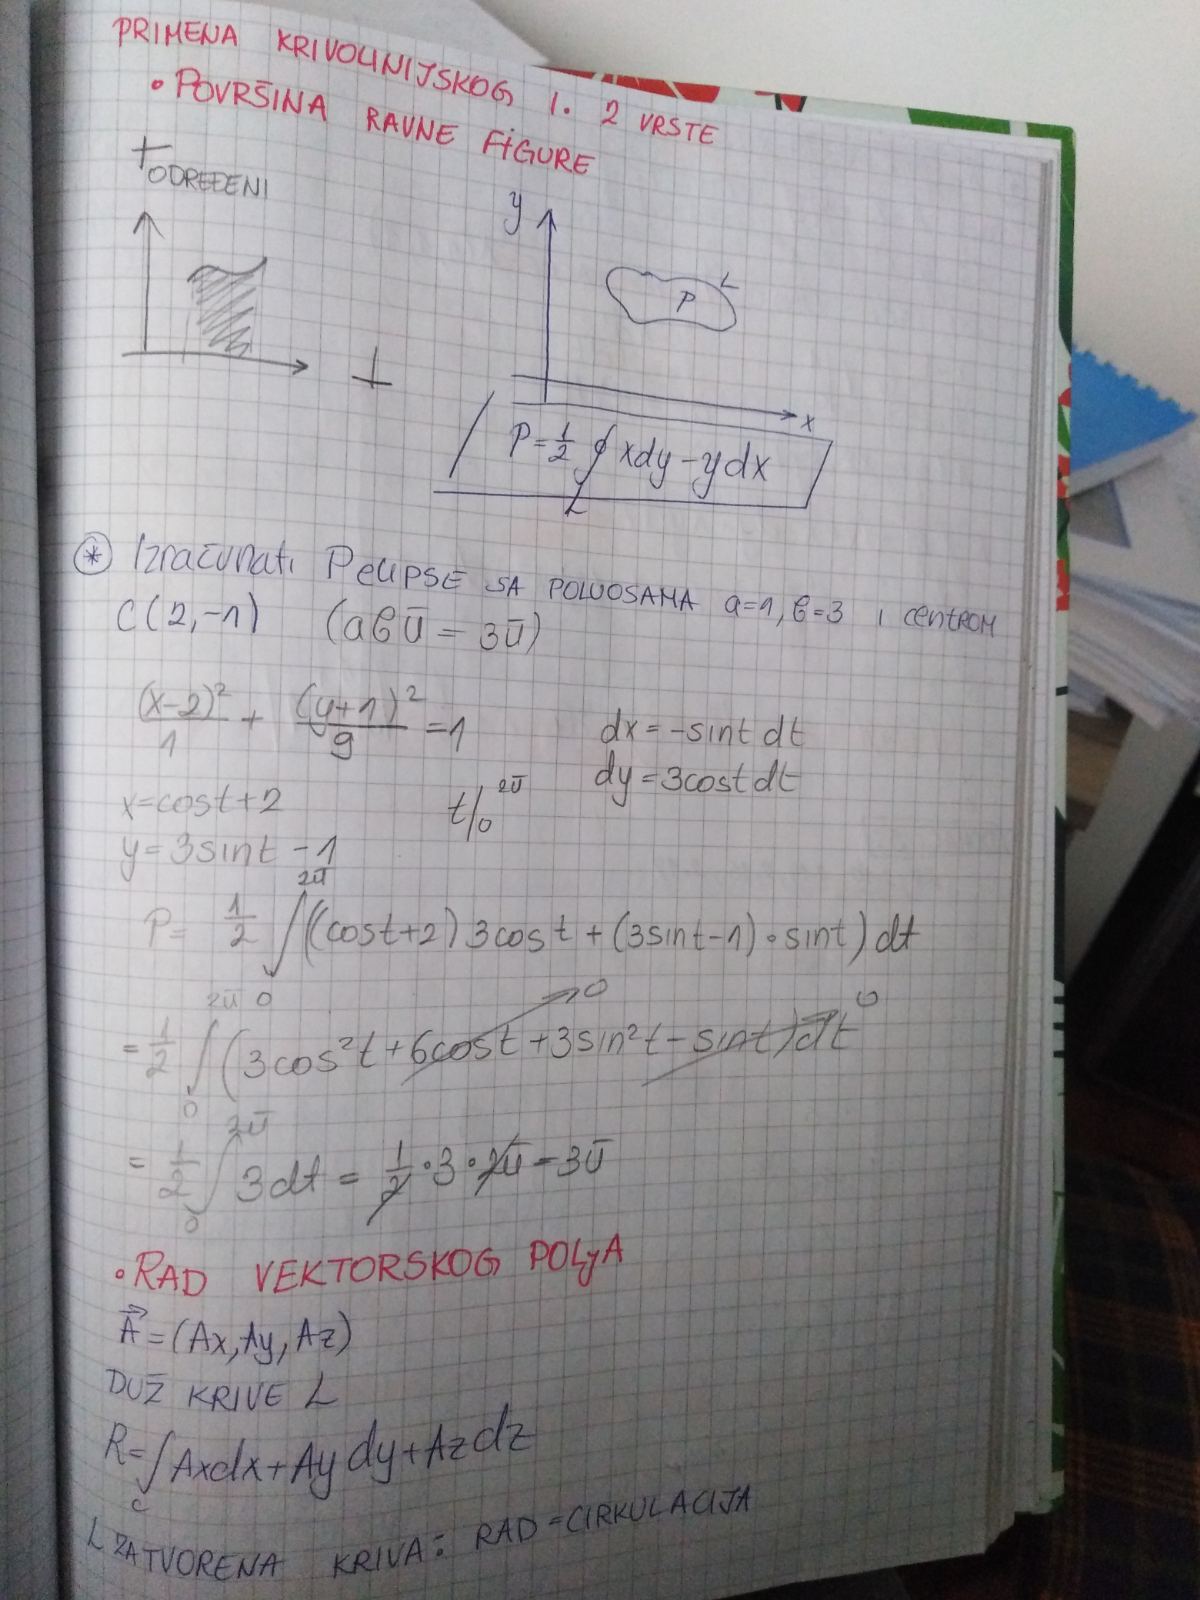 PRIMENA KRIVOLINIJSKOG I. 2 VRSTE
• POVRŠINA RAVNE FIGURE
ODREĐENI
y
L
P
x
P = 1/2 ∮ xdy - ydx
L
* Izračunati P ELIPSE SA POLUOSAMA a=1, b=3 i CENTROM
C(2,-1) (abπ = 3π)
(x-2)²/1 + (y+1)²/9 = 1
dx = -sint dt
dy = 3cost dt
x = cost+2
t/₀^2π
y = 3sint - 1
P = 1/2 ∫₀^2π ((cost+2) 3cost + (3sint-1) • sint) dt
= 1/2 ∫₀^2π (3cos²t + 6cost + 3sin²t - sint) dt
0 0
= 1/2 ∫₀^2π 3dt = 1/2 • 3 • 2π = 3π
• RAD VEKTORSKOG POLjA
A⃗ = (Ax, Ay, Az)
DUŽ KRIVE L
R = ∫ Axdx + Ay dy + Az dz
c
L ZATVORENA KRIVA: RAD = CIRKULACIJA